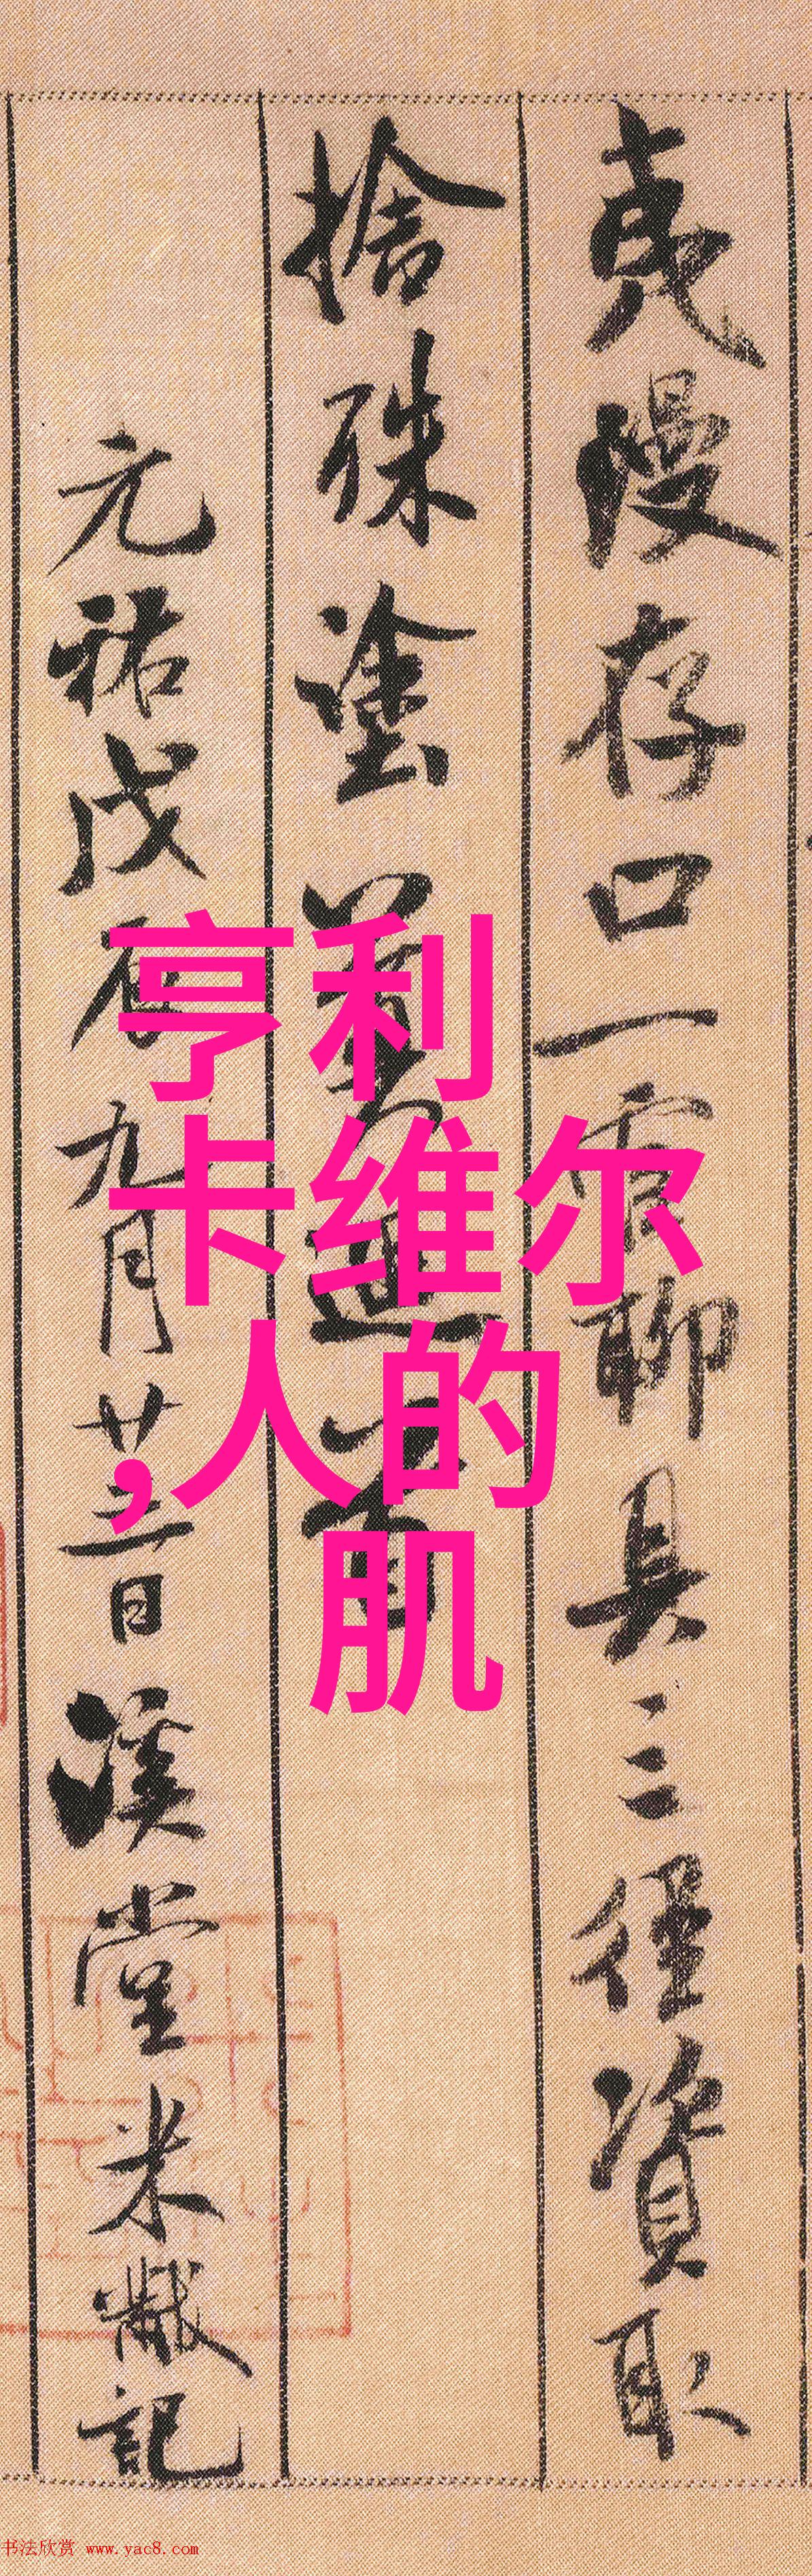 夷漫存口一官聊具三徑資取
捨殊塗莫迴首
元祐戊辰九月廿三日溪堂米黻記
亨利
卡维尔
,人的
肌
书法欣赏 www.yac8.com